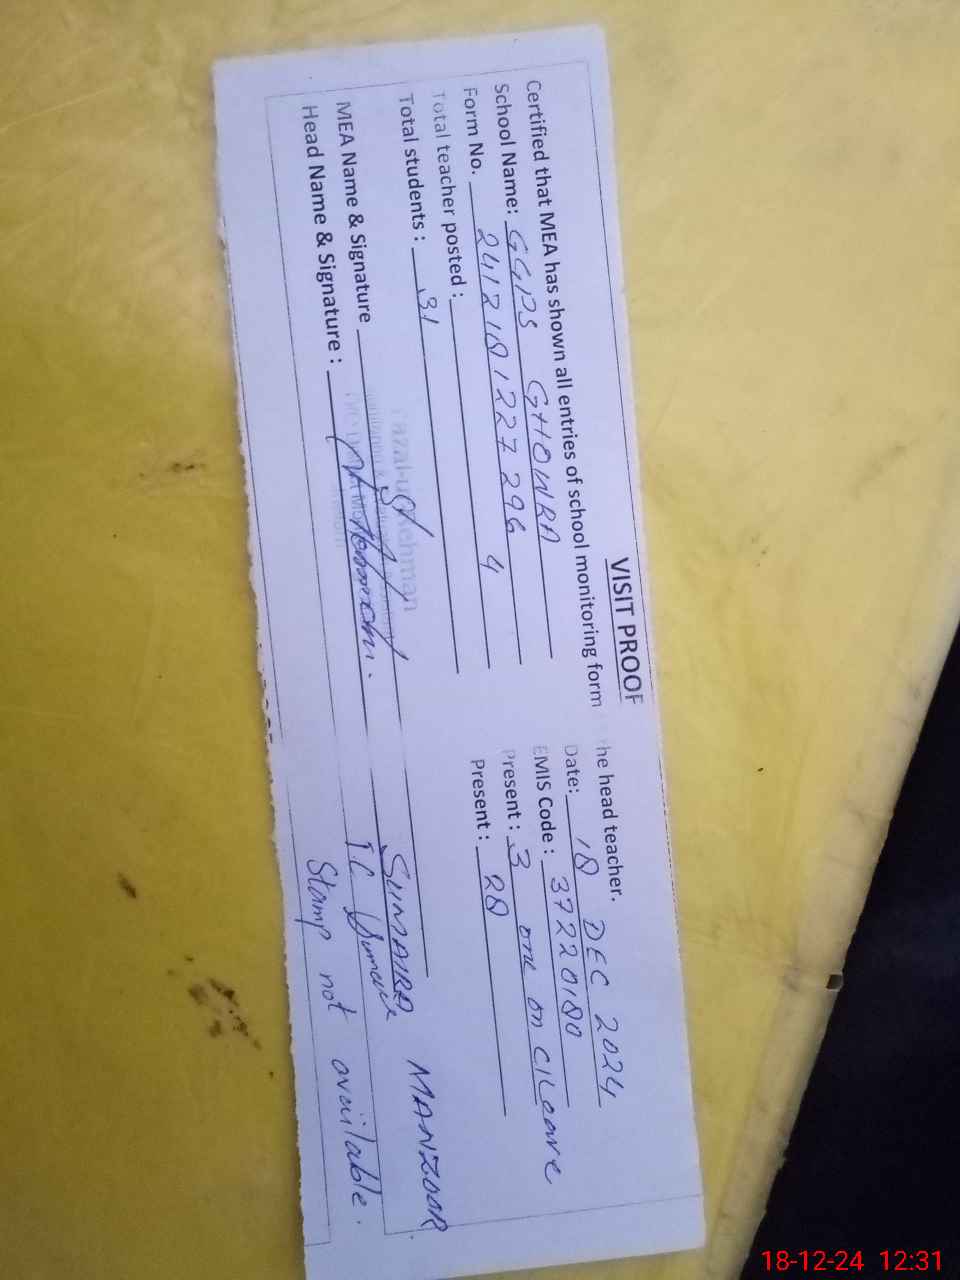 VISIT PROOF
Certified that MEA has shown all entries of school monitoring form the head teacher.
School Name: GGPS GHOURA Date: 18 DEC 2024
Form No. 241218122729 6 EMIS Code : 37220180
Total teacher posted : 4 Present : 3 one on c/Leave
Total students : 31 Present : 28
Fazal-ur-Rehman
MEA Name & Signature SUMAIRA MANZOOR
Head Name & Signature : I.C Sumaira
Stamp not available.
18-12-24 12:31